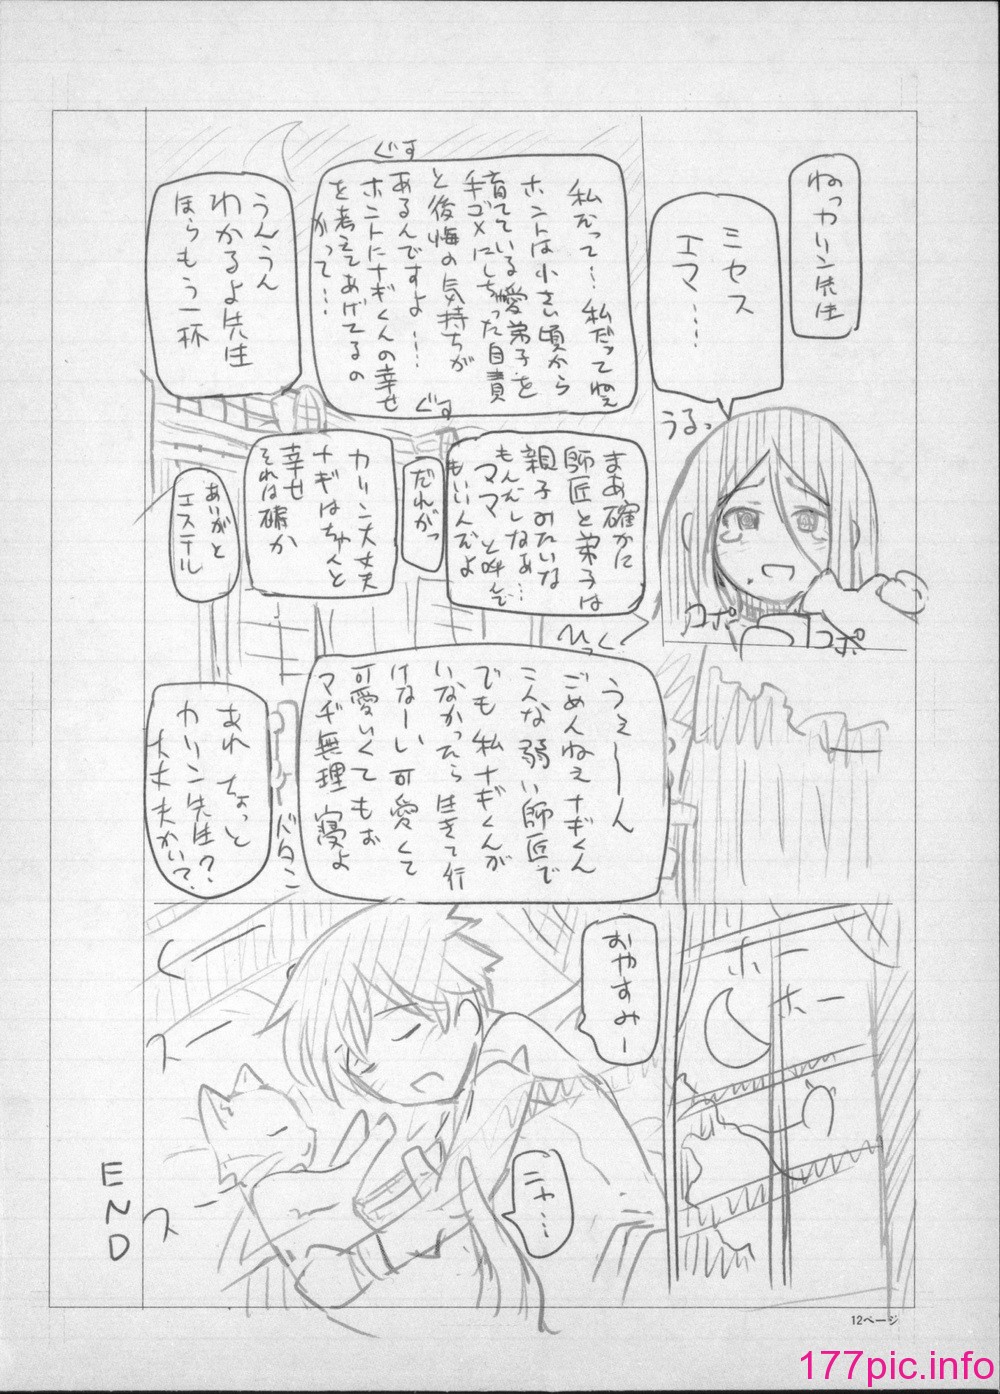 ねっカリン先生
ミセス
エマ…
うるっ
コポ
コポ
ぐす
私だって…私だってねぇ
ホントは小さい頃から
育てている愛弟子を
手ゴメにしちゃった自責
と後悔の気持ちが
あるんですよ……
ホントにナギくんの幸せ
を考えてあげてるの
かって…
ぐす
うんうん
わかるよ先生
ほらもう一杯
まあ確かに
師匠と弟子は
親子みたいな
もんだしなあ…
ママ と呼んで
もいいんだよ
だれがっ
カリン大丈夫
ナギはちゃんと
幸せ
それは確か
ありがと
エステル
ひっく
うえーーん
ごめんねぇナギくん
こんな弱い師匠で
でも私ナギくんが
いなかったら生きて行
けなーい可愛くて
可愛いくてもお
マヂ無理 寝よ
バタン
あれ ちょっと
カリン先生?
大丈夫かい?
ホー
ホー
おやすみー
くー
スー
ニャ…
スー
END
12ページ
177pic.info